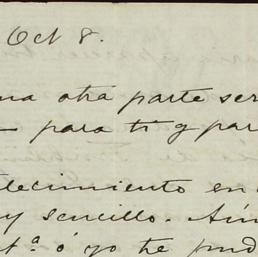 Oct 8.
na otra parte ser
para ti y par
tecimiento en
y sencillo. Aún
tª ó yo te pud